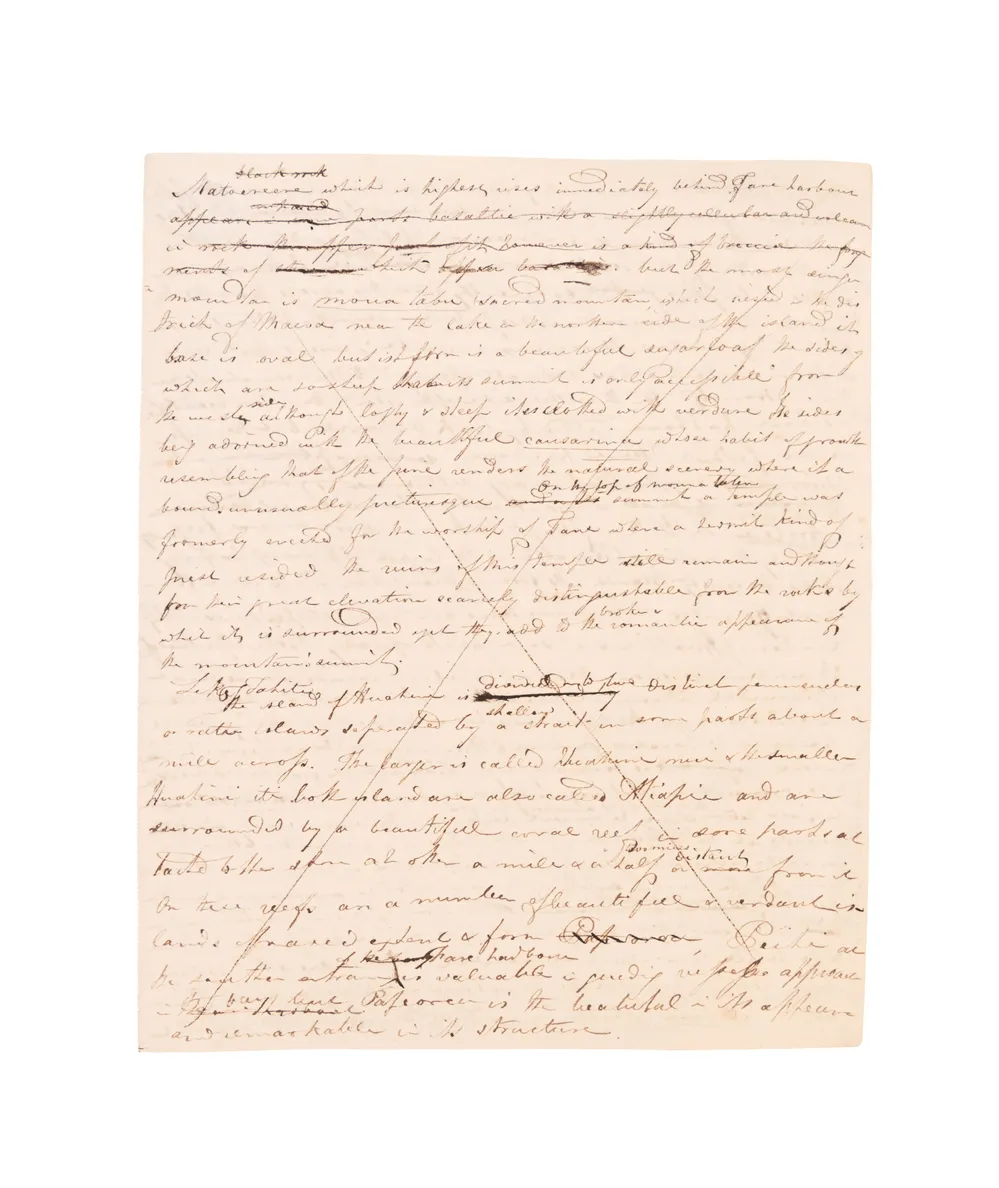 black rock
Matoereere which is highest, rises immediately behind Fare harbour
appears in parts basaltic with a slightly cellular and volcan
ic rock the upper part of it however is a kind of breccia the frag
ments of which but the most singu
mountain is moua tabu sacred mountain which is in the dis
trict of Maeva near the lake on the northern side of the island it
base is oval but its form is a beautiful sugar loaf the sides of
which are so steep that its summit is only accessible from
the west side although lofty & steep it is clothed with verdure the sides
being adorned with the beautiful causarina whose habit of growth
resembling that of the pine renders the natural scenery where it a
on the top of moua tabu
bound unusually picturesque and on its summit a temple was
formerly erected for the worship of Tane where a hermit kind of
priest resided the ruins of this temple still remain and though
from their great elevation scarcely distinguishable from the rocks by
broken
which it is surrounded yet they add to the romantic appearance of
the mountain's summit.
Like Tahiti
the island of Huahine is divided into two distinct peninsulas
shallow
or rather islands seperated by a strait in some parts about a
mile across. The larger is called Huahine nui & the smaller
Huahine iti both island are also called Atiapii and are
surrounded by a beautiful coral reef in some parts at
tached to the shore at other a mile & a half or more distant from it
On these reefs are a number of beautiful & verdant is
lands of varied extent & form Papeorea, Peihi at
of the Fare harbour
the southern entrance is valuable in guiding vessels approach
in the bay but Papeorea is the beautiful in its appear
and remarkable in its structure.